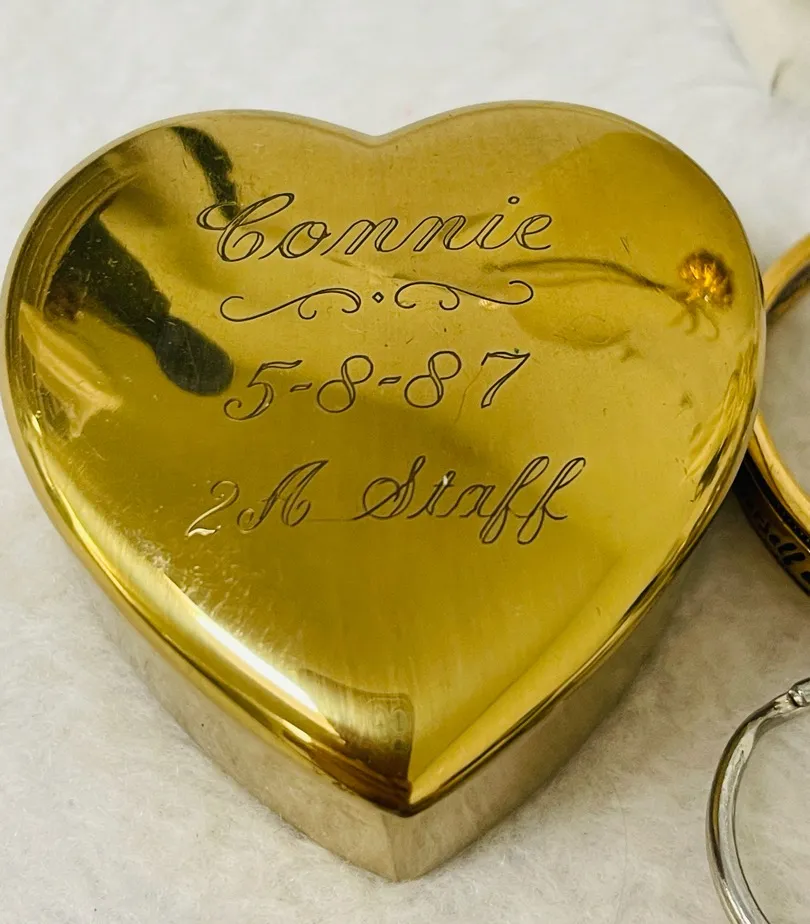 Connie
5-8-87
2A Staff